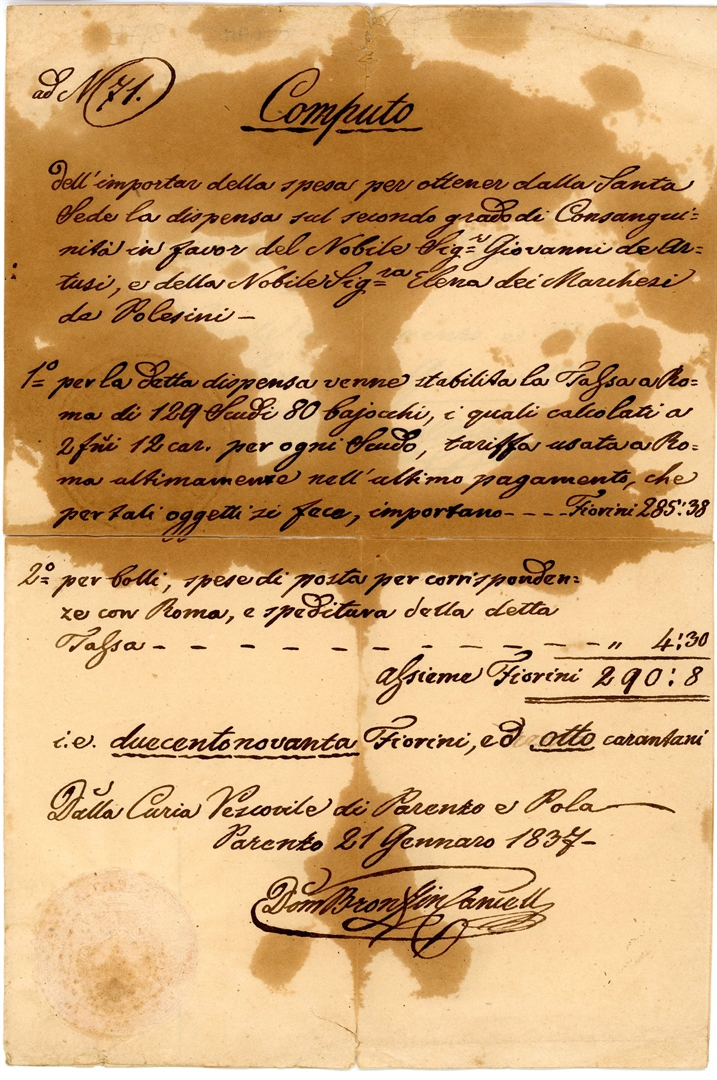 ad N 71.
Computo
dell'importar della spesa per ottener dalla Santa
Sede la dispensa sul secondo grado di Consangui=
nità in favor del Nobile Sig.r Giovanni de Ar=
tusi, e della Nobile Sig.ra Elena dei Marchesi
de Polesini –
1º per la detta dispensa venne stabilita la Tassa a Ro=
ma di 129 Scudi 80 bajocchi, i quali calcolati a
2 fni 12 car. per ogni Scudo, tariffa usata a Ro=
ma ultimamente nell'ultimo pagamento, che
per tali oggetti si fece, importano – – – – Fiorini 285:38
2º per bolli, spese di posta per corrisponden=
ze con Roma, e speditura della detta
Tassa – – – – – – – – – – – – – " 4:30
assieme Fiorini 290:8
i.e. duecentonovanta Fiorini, ed otto carantani
Dalla Curia Vescovile di Parenzo e Pola
Parenzo 21 Gennaro 1837–
Dom Bronzin